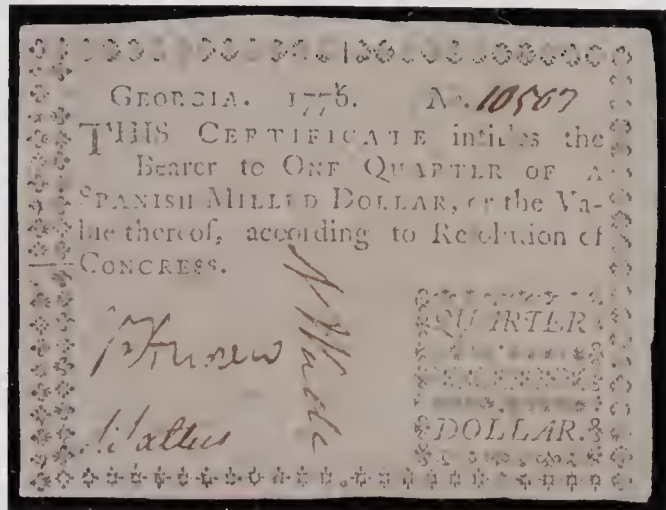 GEORGIA. 1776. No. 10567
THIS CERTIFICATE intitles the
Bearer to ONE QUARTER OF A
SPANISH MILLED DOLLAR, or the Va-
lue thereof, according to Resolution of
CONGRESS.
QUARTER
DOLLAR.